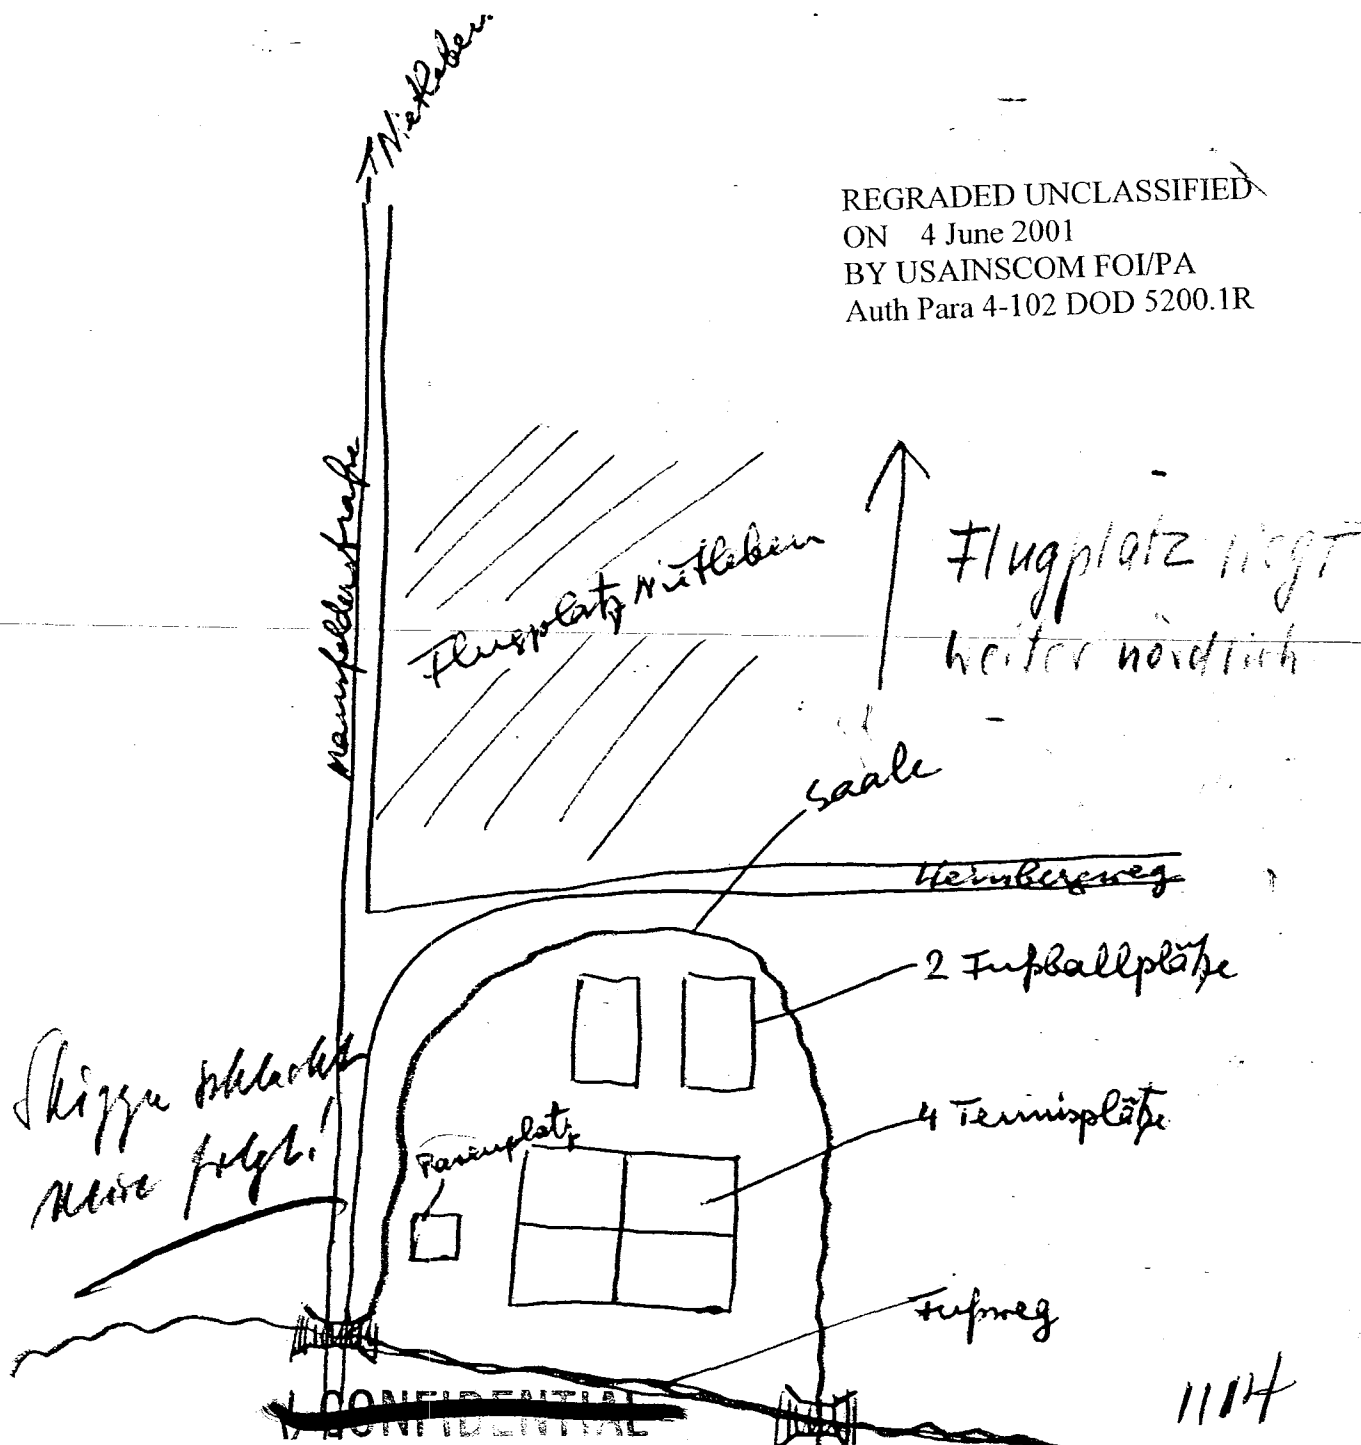 → Nietleben
REGRADED UNCLASSIFIED
ON 4 June 2001
BY USAINSCOM FOI/PA
Auth Para 4-102 DOD 5200.1R
Mansfelderstraße
Flugplatz Nietleben
Flugplatz liegt
weiter nördlich
Saale
2 Fußballplätze
Skizze schlecht
neue folgt!
4 Tennisplätze
Fußweg
CONFIDENTIAL
1114